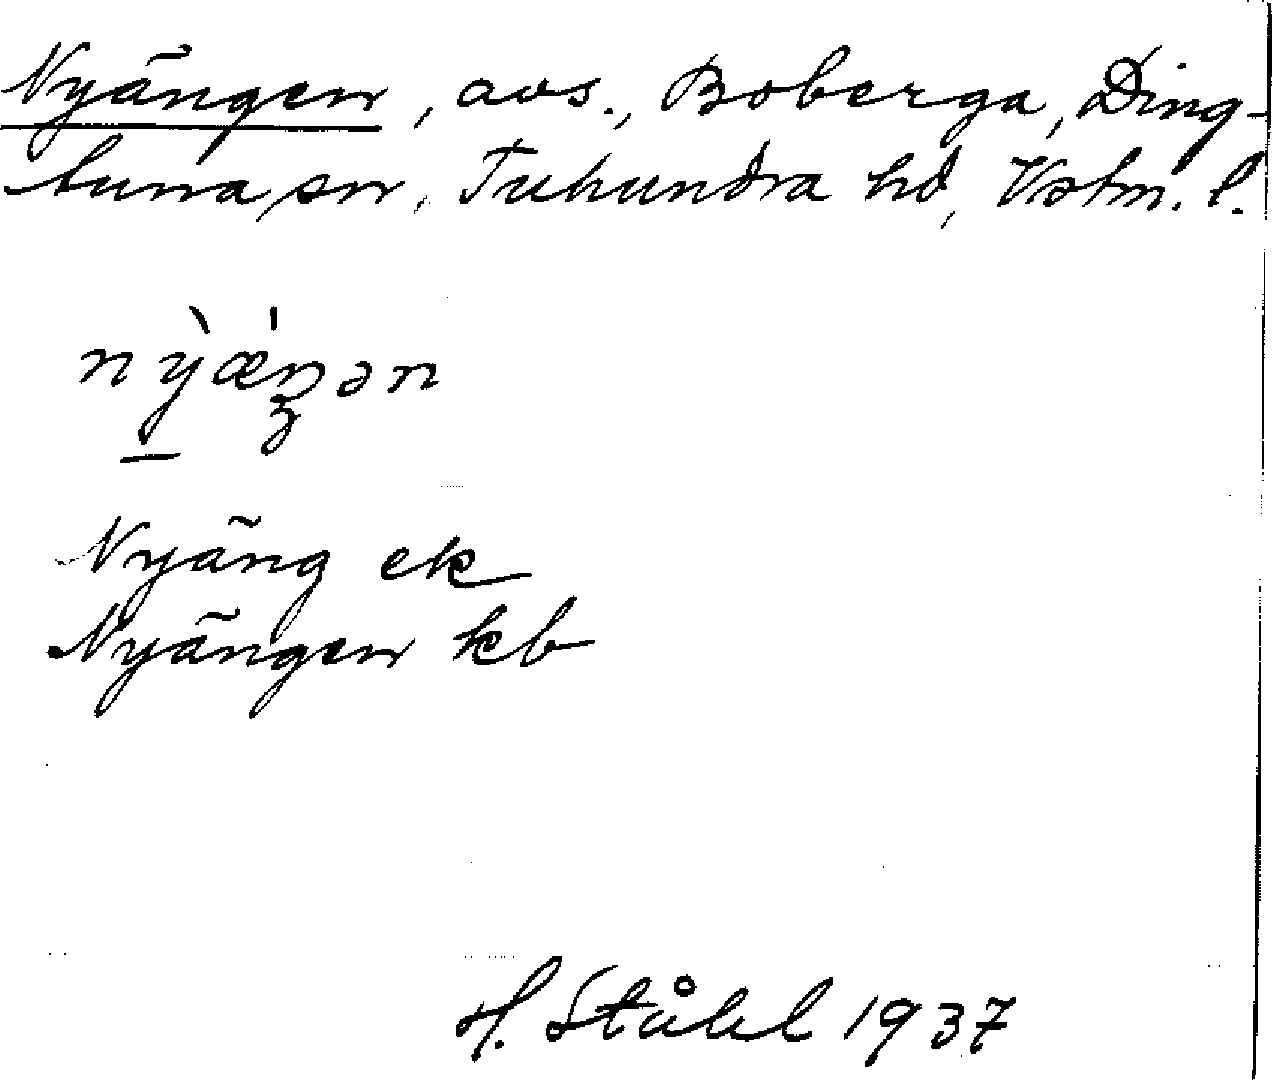 Nyängen, avs., Boberga, Ding-
tuna sn, Tuhundra hd, Vstm. l.
nỳæ̀ŋən
Nyäng ek
Nyängen kb
H. Ståhl 1937